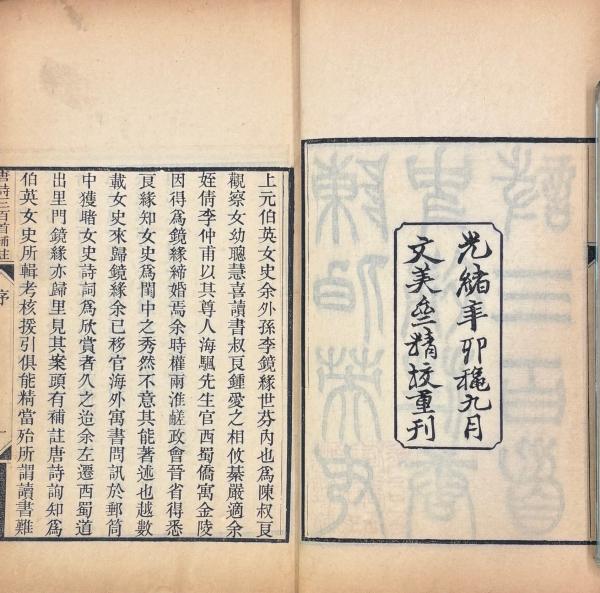 光緒辛卯穐九月
文美齋精校重刊
上元伯英女史余外孫李鏡緣世芬內也爲陳叔良
觀察女幼聰慧喜讀書叔良鍾愛之相攸綦嚴適余
姪倩李仲甫以其尊人海颿先生官西蜀僑寓金陵
因得爲鏡緣締婚焉余時權兩淮鹺政會晉省得悉
良緣知女史爲閨中之秀然不意其能著述也越數
載女史來歸鏡緣余已移官海外寓書問訊於郵筒
中獲睹女史詩詞爲欣賞者久之迨余左遷西蜀道
出里門鏡緣亦歸里見其案頭有補註唐詩詢知爲
伯英女史所輯考核援引俱能精當殆所謂讀書難
唐詩三百首補註
序
一